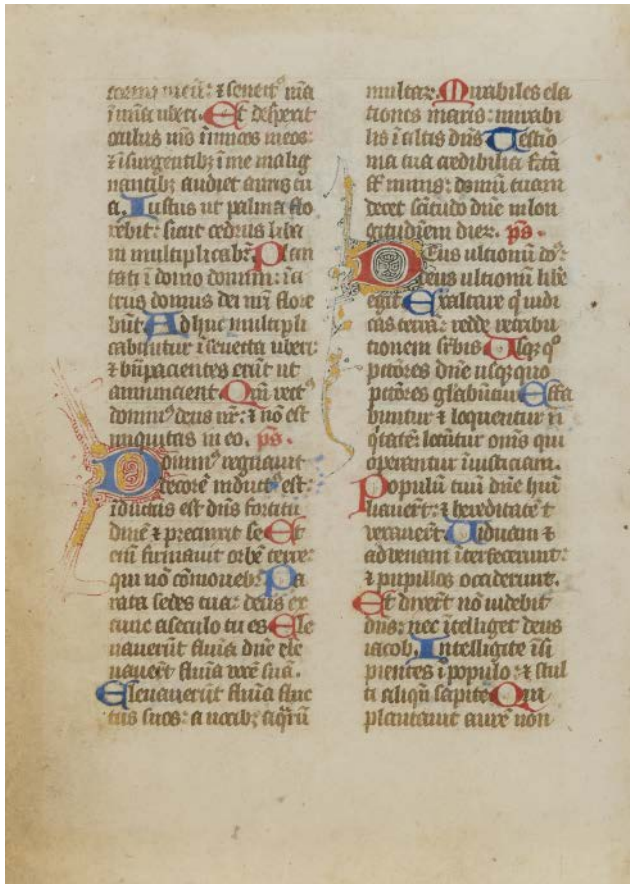 cornu meū: ⁊ senect⁹ mīa
ī mīa uberi. Et despexit
oculus mīs īimicos meos:
⁊ īsurgentibꝫ ī me malig
nantibꝫ audiet auris tu
a. Iustus ut palma flo
rebit: sicut cedrus liba
ni multiplicabr̄. Plan
tati ī domo domini: ī a
triis domus dei nr̄i flore
būt. Adhuc multipli
cabūtur ī senecta uberi:
⁊ bn̄ pacientes erūt ut
annuncient. Qm̄ rect⁹
domin⁹ deus nr̄: ⁊ nō est
iniquitas in eo. ps.
Domin⁹ regnauit
decorē indut⁹ est:
īdutus est dn̄s fortitu
dinē ⁊ precinxit se. Et
eni firmauit orbē terre:
qui nō cōmouebr̄. Pa
rata sedes tua: deus ex
tunc a seculo tu es. Ele
uauerūt flūia dn̄e ele
uauer̄t flūia uocē suā.
Eleuauerūt flūia fluc
tus suos: a uocibꝫ aq̄rū
multaꝝ. Mirabiles ela
tiones maris: mirabi
lis ī altis dn̄s. Testio
nia tua credibilia fc̄ā
sūt nimis: domū tuam
decet sc̄itudo dn̄e in lon
gitudinem dieꝝ. ps.
Deus ultionū do⁹:
deus ultionū libe
egit. Exaltare q̄ iudi
cas terrā: redde retribu
tionem suꝑbis. Usqꝫ q̊
pctōres dn̄e usqꝫ quo
pctōres glābūtur. Effa
buntur ⁊ loquentur ī
q̄tatē: loq̄ntur om̄s qui
operantur īiusticiam.
Populū tuū dn̄e hūi
liauer̄t: ⁊ hereditatē t
uexauer̄t. Uiduam ⁊
aduenam īterfecerunt:
⁊ pupillos occiderunt.
Et dixer̄t nō uidebit
dn̄s: nec ītelliget deus
iacob. Intelligite īsi
pientes ī populo: ⁊ stul
ti aliqn̄ sapite. Qui
plantauit aurē non